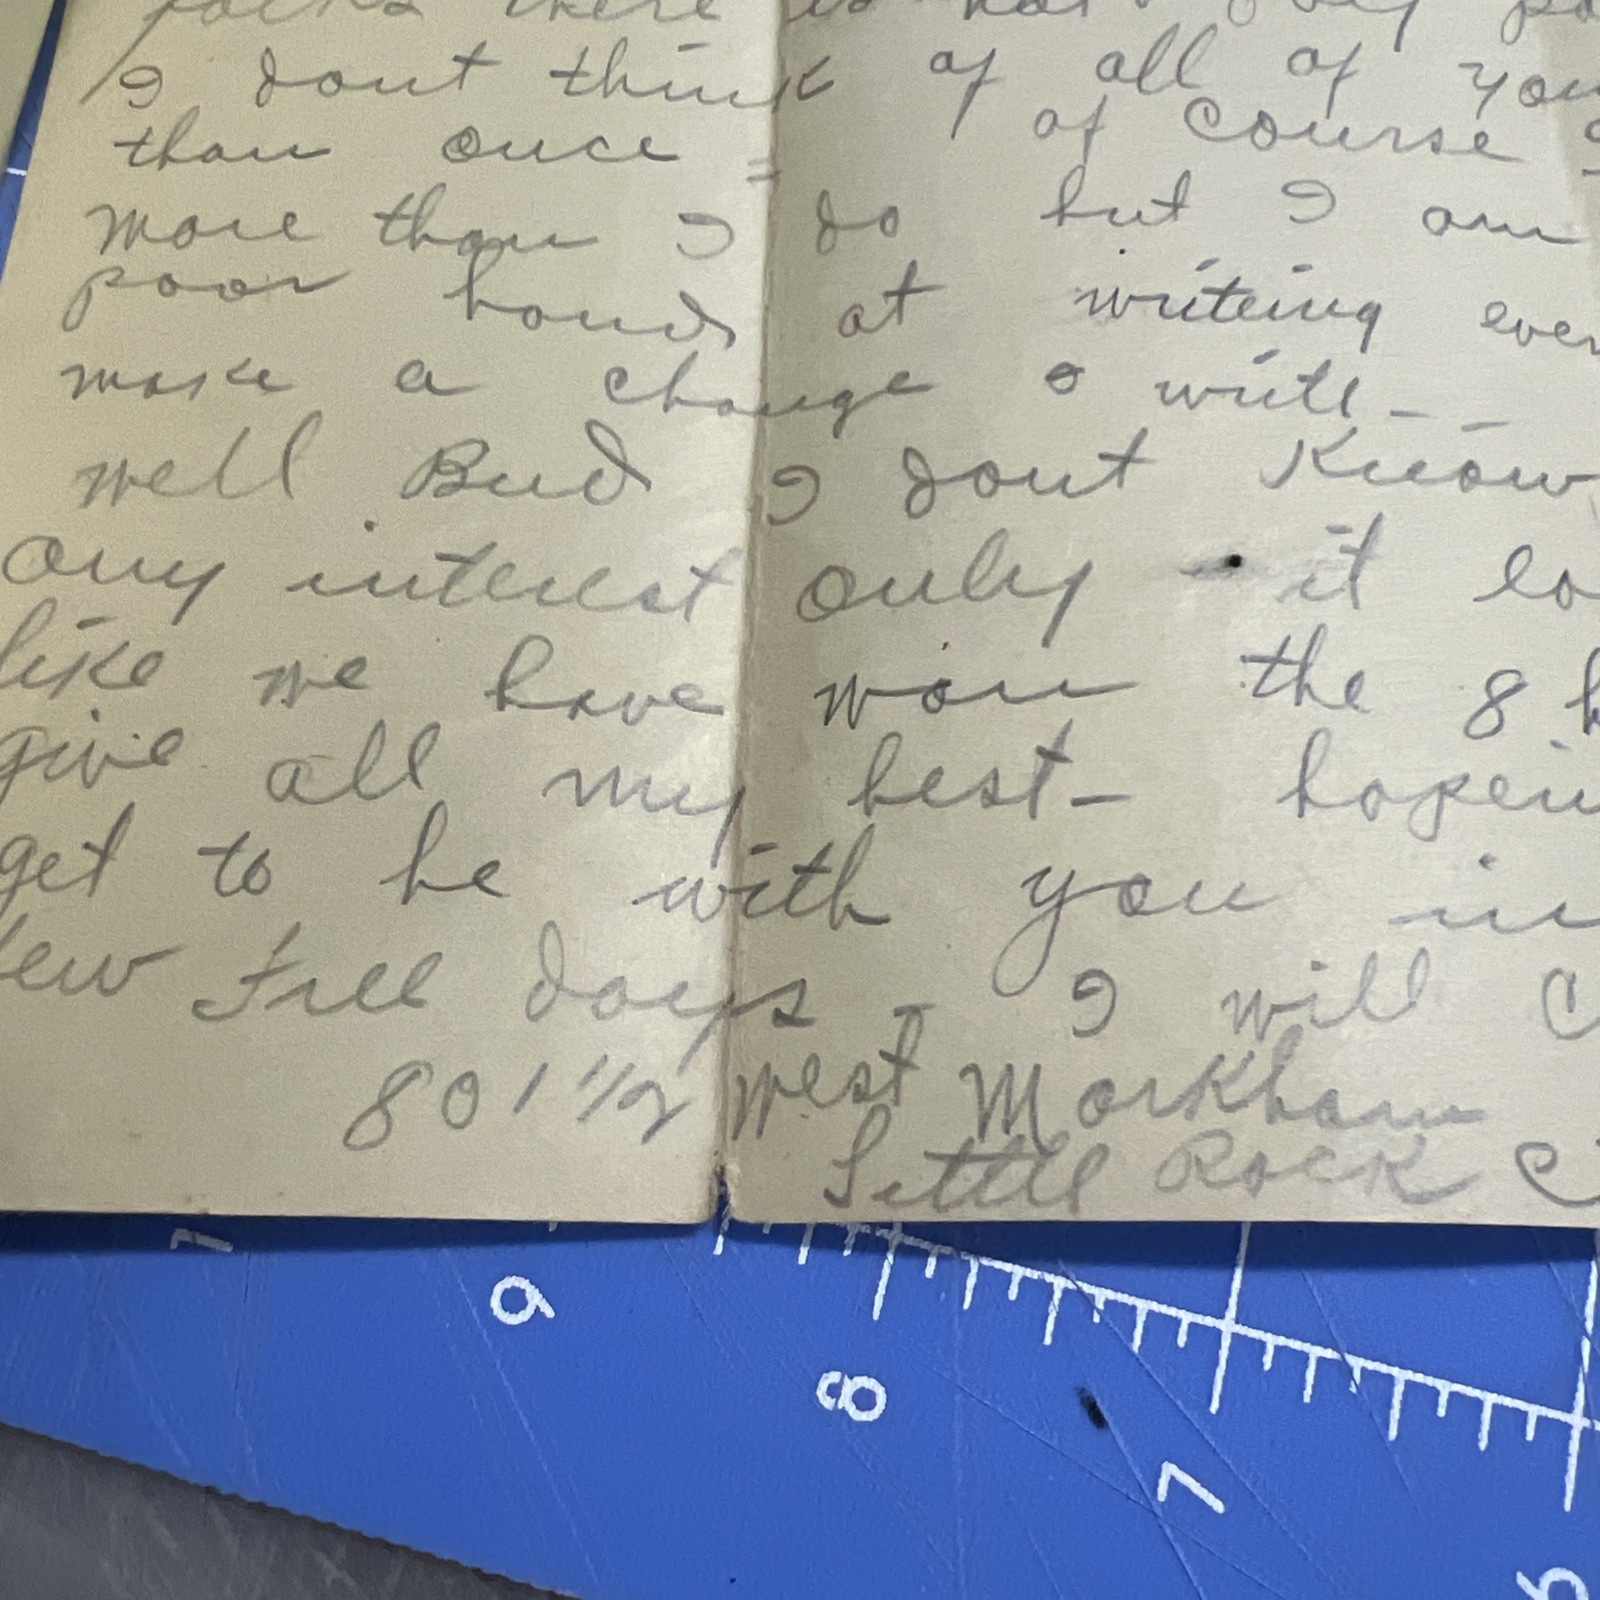 folks there is not
I dont think of all of you
than once = of course
more than I do but I am
poor hand at writeing
make a change & write - -
well Bud I dont Know
any interest only - it
like we have won the 8
give all my best -
get to be with you in
few Free days - I will
801 1/2 west Markham
Little Rock
9
8
7